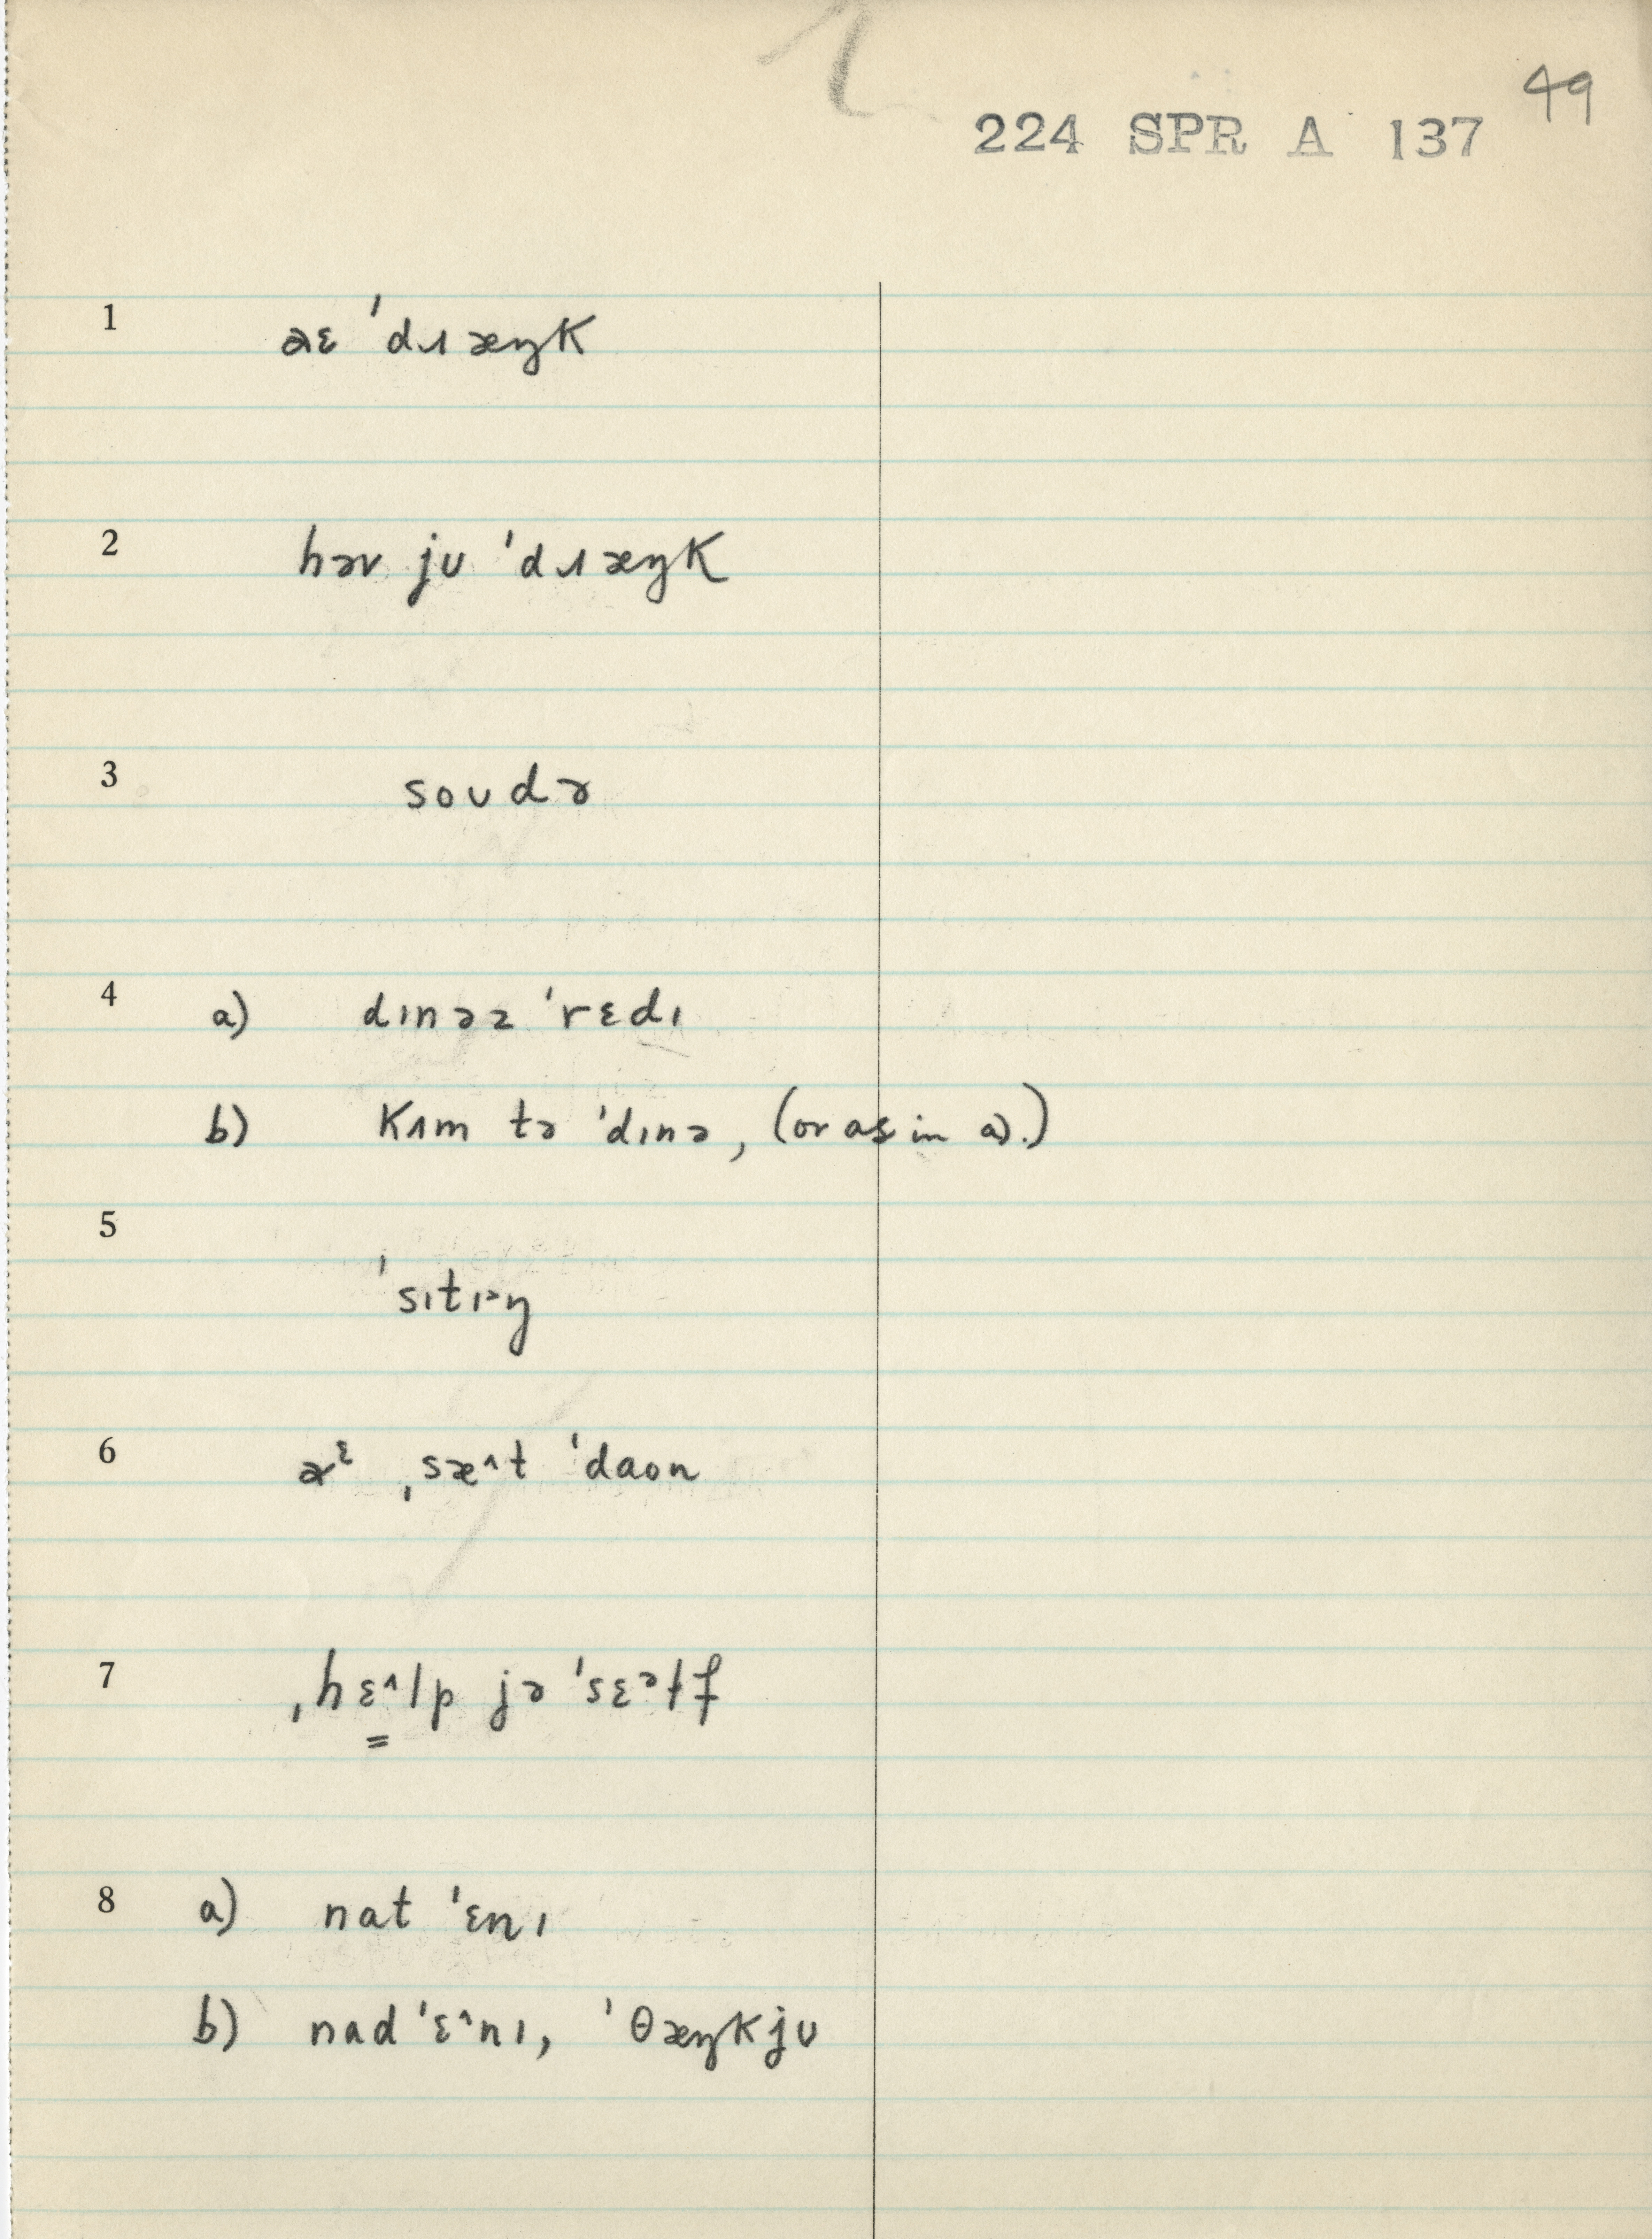 49
224 SPR A 137
1 aɛ ˈdɹæŋk
2 həv jʊ ˈdɹæŋk
3 soʊdə
4 a) dɪnəz ˈrɛdɪ
b) kʌm tə ˈdɪnə, (or as in a).)
5 ˈsɪtɪᵊŋ
6 aᵋ ˌsæ^t ˈdaon
7 ˌhɛ̳^lp jə ˈsɛᵊɫf
8 a) nat ˈɛnɪ
b) nad ˈɛ^nɪ, ˈθæŋkjʊ